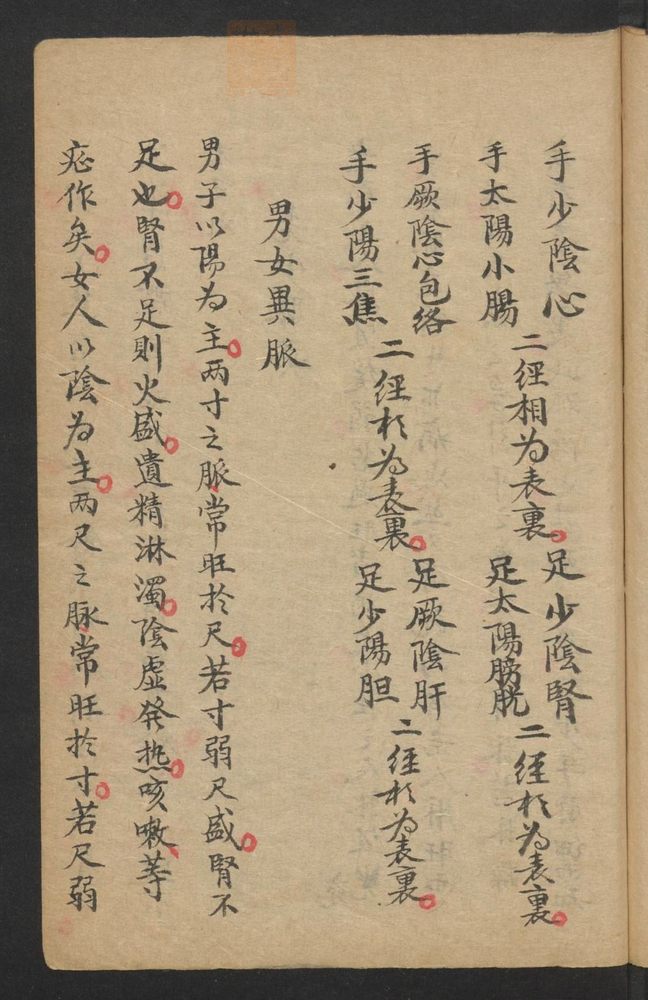 手少陰心
手太陽小腸
二經相为表裏。
足少陰腎
足太陽膀胱
二經相为表裏。
手厥陰心包絡
手少陽三焦
二經相为表裏。
足厥陰肝
足少陽胆
二經相为表裏。
男女異脈
男子以陽为主。两寸之脈常旺於尺。若寸弱尺盛。腎不
足也。腎不足則火盛。遺精淋濁。陰虛發热。咳嗽等
症作矣。女人以陰为主。两尺之脉常旺於寸。若尺弱